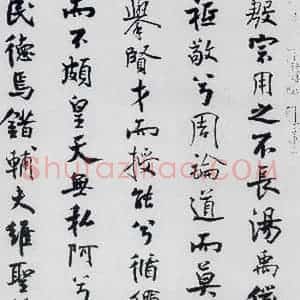 殷宗用之不長湯禹儼
祗敬兮周論道而莫
舉賢才而授能兮循繩
而不頗皇天無私阿兮
民德焉錯輔夫維聖